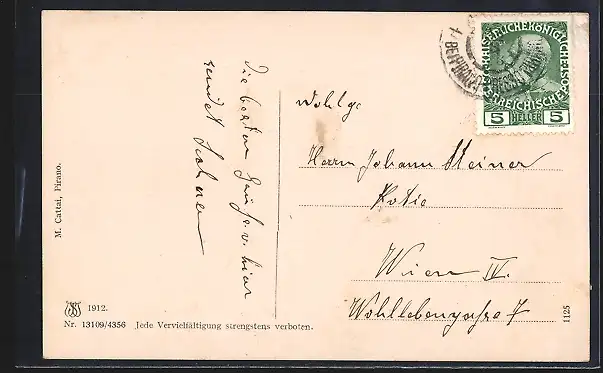 Die besten Grüße v. hier
sendet
M. Cattai, Pirano.
1912.
Nr. 13109/4356 Jede Vervielfältigung strengstens verboten.
1125
KAISERLICHE KÖNIGLICHE ÖSTERREICHISCHE
5 HELLER 5
Wohlge
Herrn Johann Steiner
Wien IV.
Wohllebengasse 7